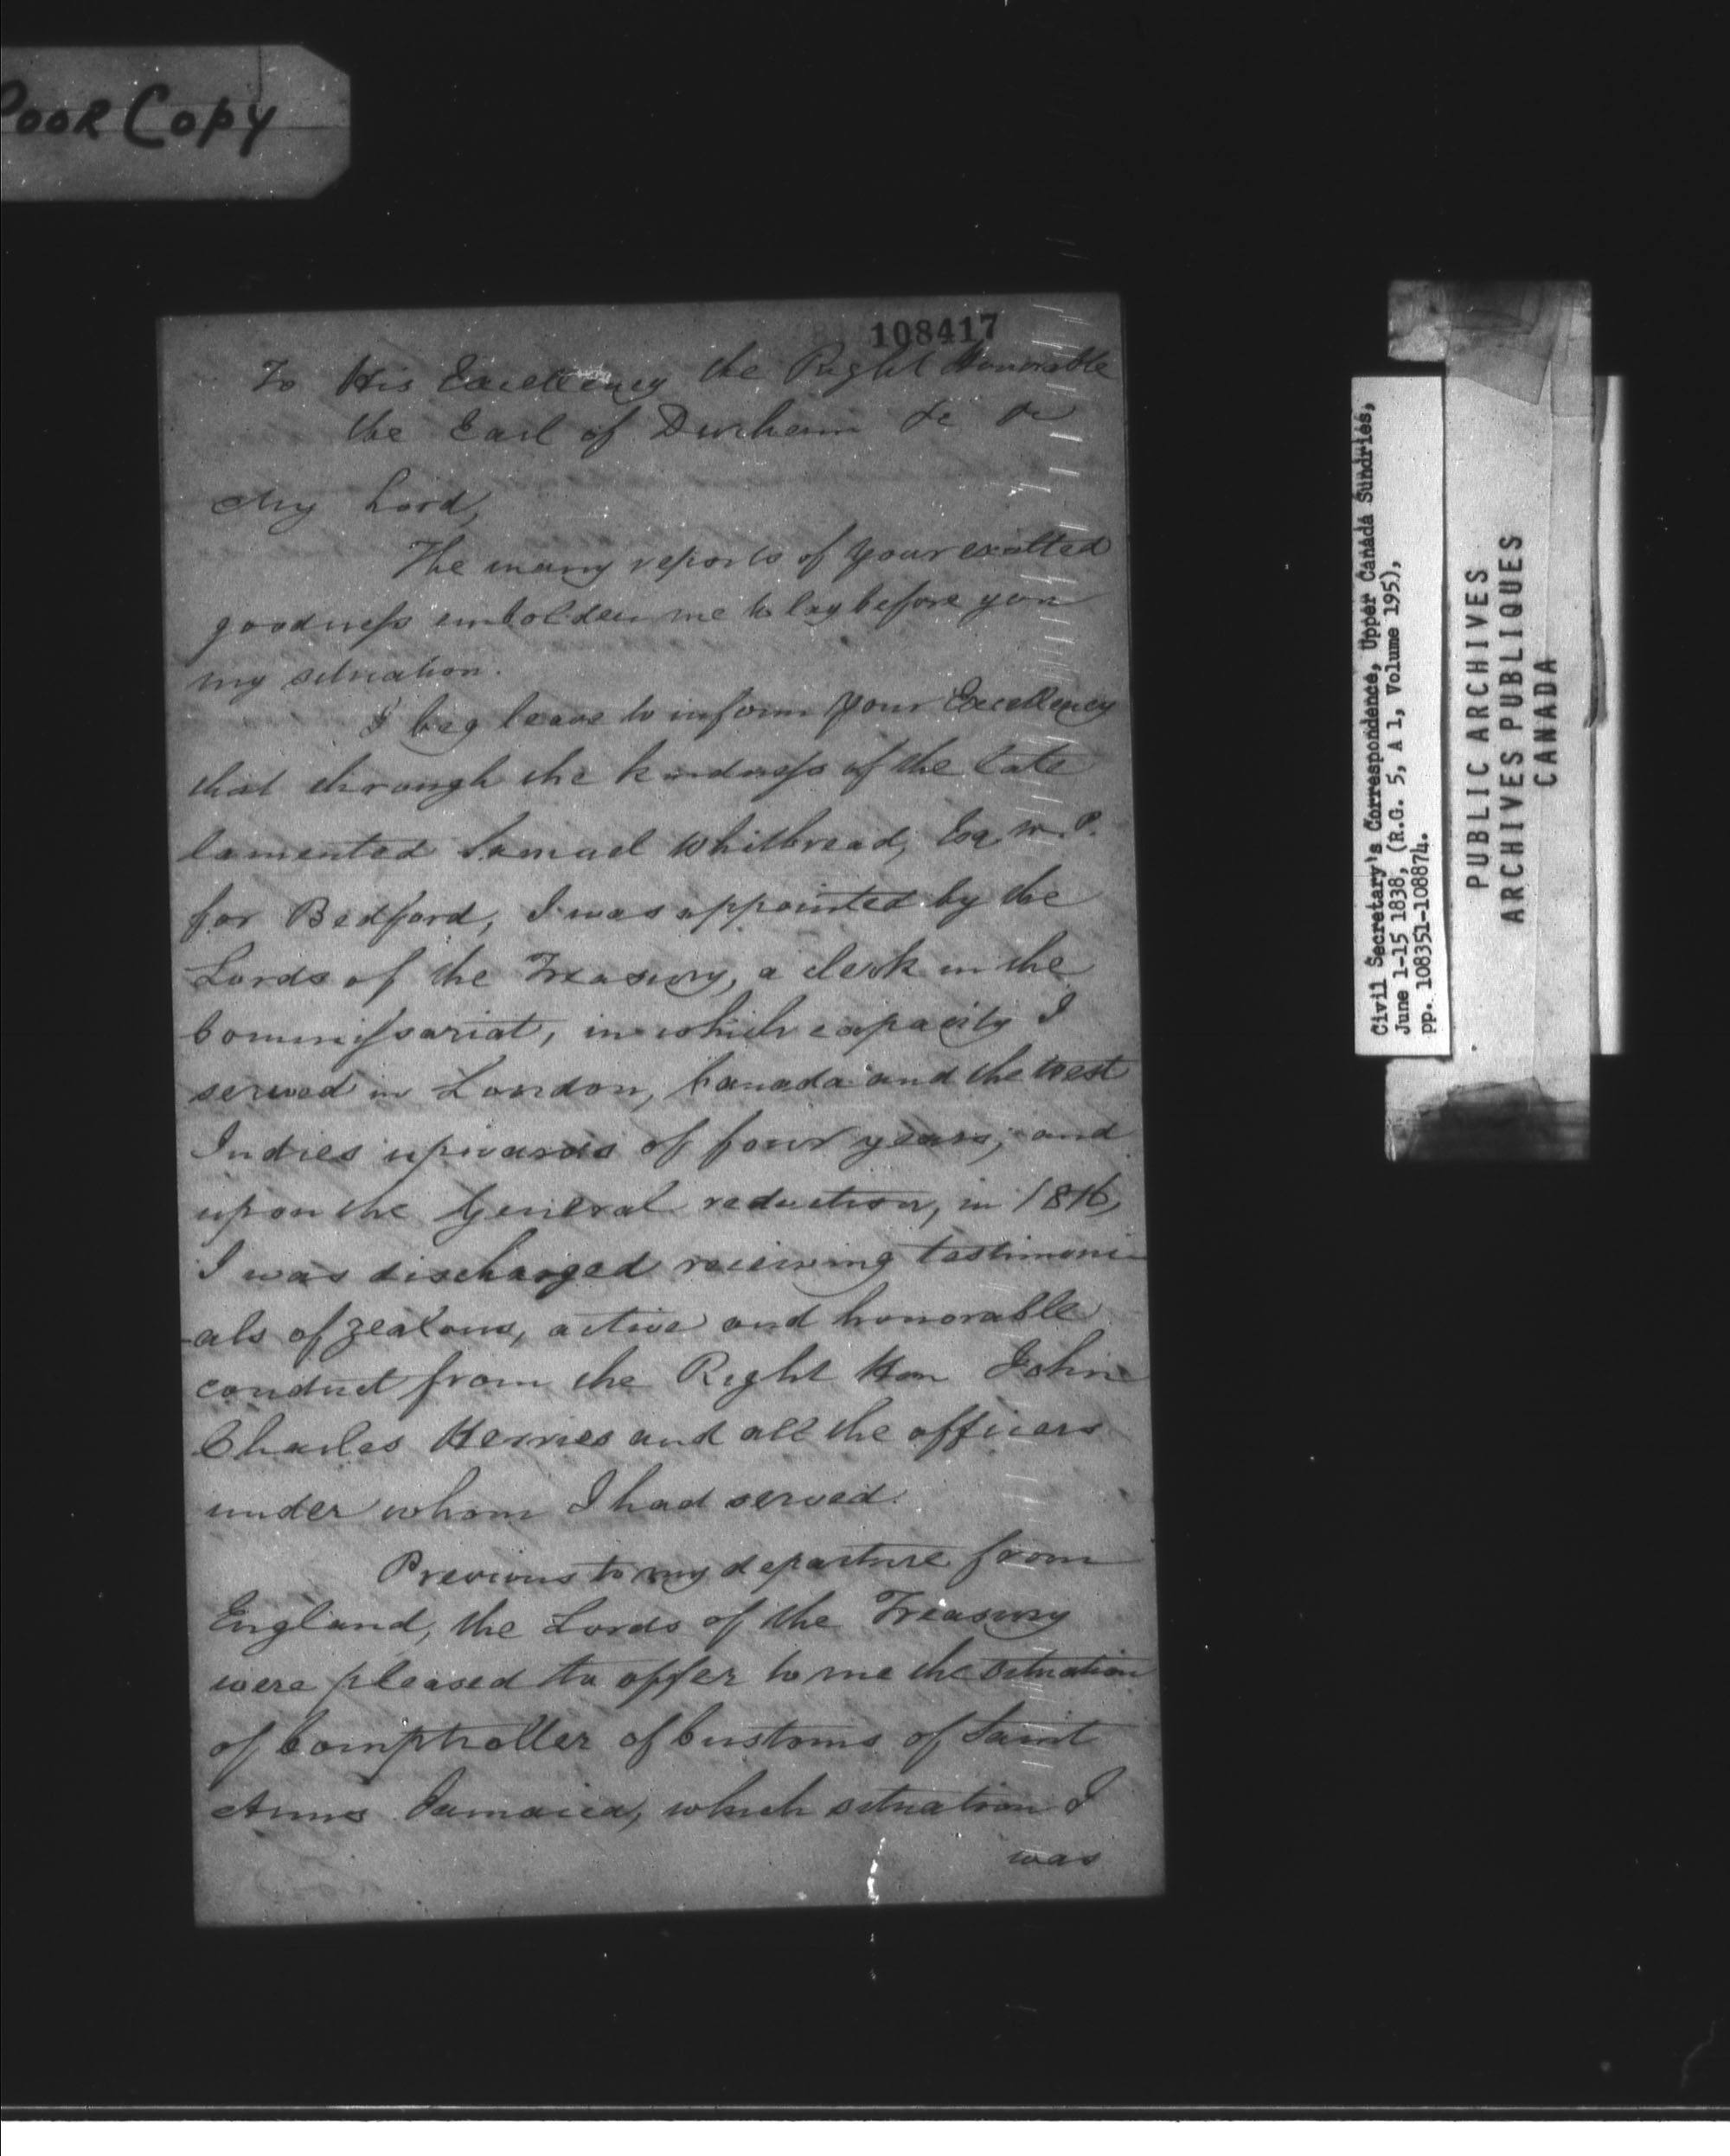 Poor Copy
108417
To His Excellency the Right Honorable
the Earl of Durham &c &c
My Lord,
The many reports of your exalted
goodness embolden me to lay before you
my situation.
I beg leave to inform your Excellency
that through the kindness of the late
lamented Samuel Whitbread, Esq M.P.
for Bedford, I was appointed by the
Lords of the Treasury, a clerk in the
Commissariat, in which capacity I
served in London, Canada and the West
Indies upwards of four years; and
upon the General reduction, in 1816,
I was discharged receiving testimoni
-als of zealous, active and honorable
conduct from the Right Hon John
Charles Herries and all the officers
under whom I had served.
Previous to my departure from
England, the Lords of the Treasury
were pleased to offer to me the situation
of Comptroller of Customs of Saint
Anns Jamaica, which situation I
was
Civil Secretary's Correspondence, Upper Canada Sundries,
June 1-15 1838, (R.G. 5, A 1, Volume 195),
pp. 108351-108874.
PUBLIC ARCHIVES
ARCHIVES PUBLIQUES
CANADA